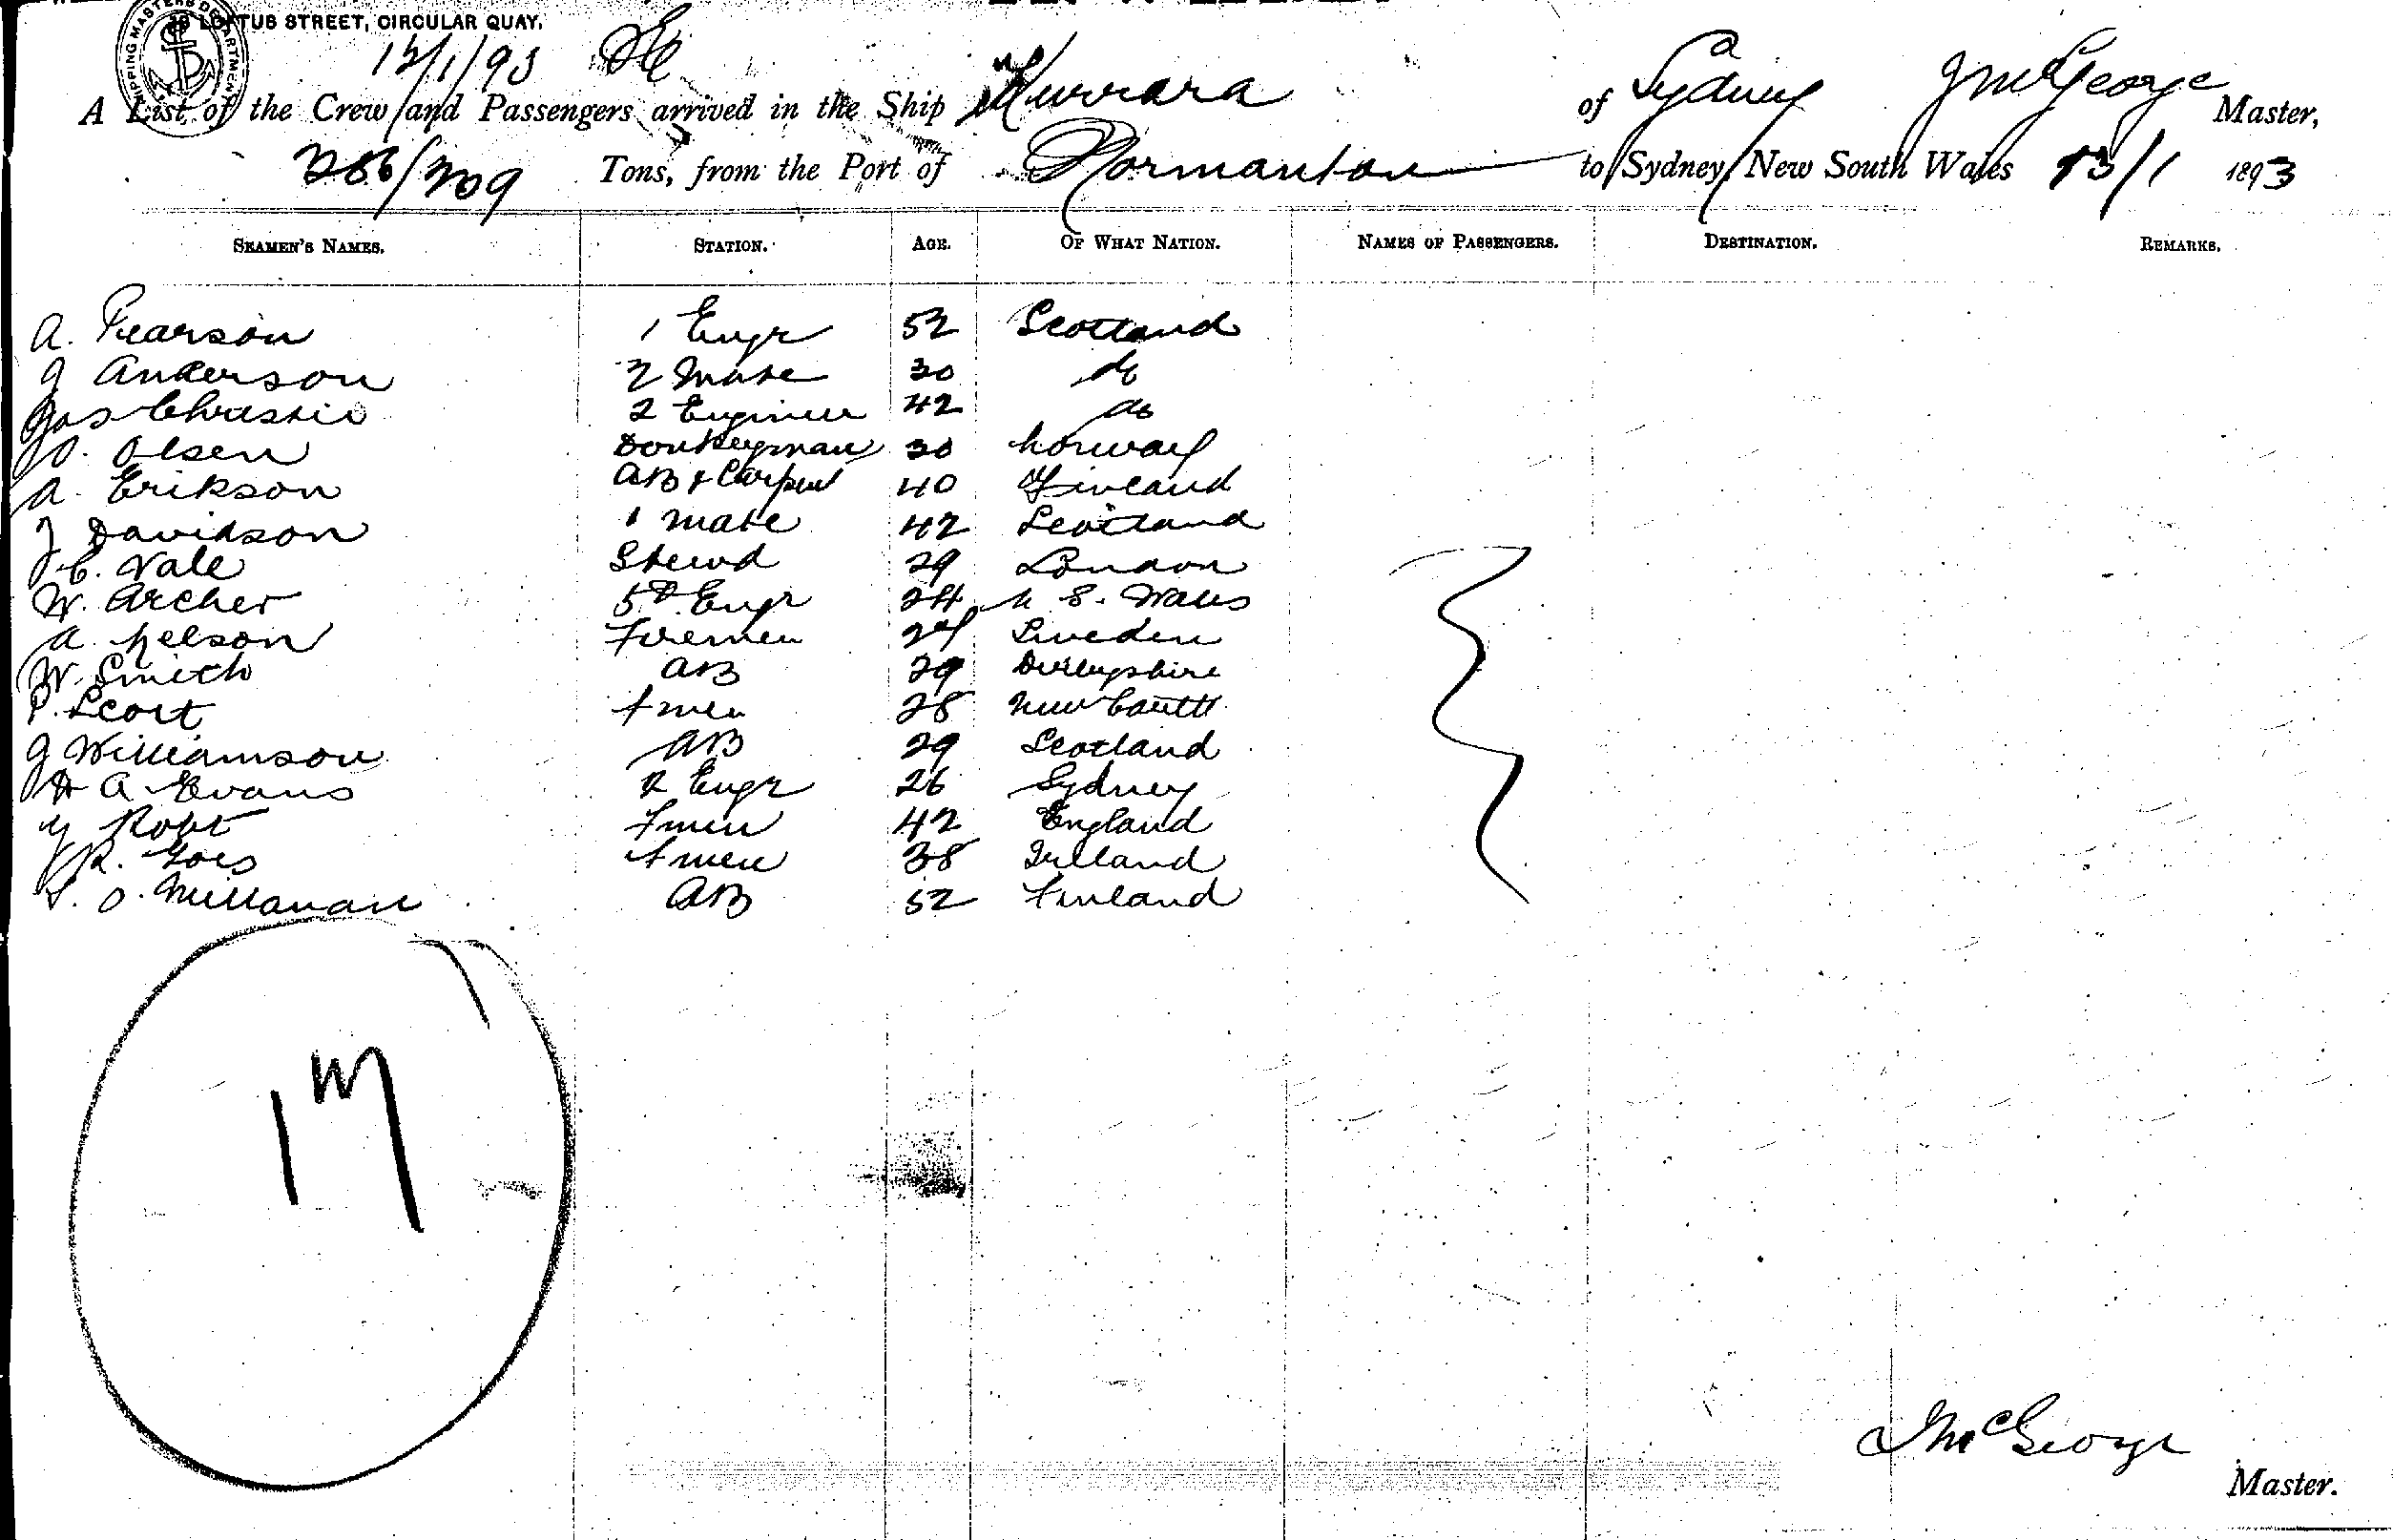 38 LOFTUS STREET, CIRCULAR QUAY.
SHIPPING MASTERS DEPARTMENT
13/1/93
A List of the Crew and Passengers arrived in the Ship Kurrara of Sydney J McGeorge Master,
286/209 Tons, from the Port of Normanton to Sydney, New South Wales 13/1 1893
SEAMEN'S NAMES. STATION. AGE. OF WHAT NATION. NAMES OF PASSENGERS. DESTINATION. REMARKS.
A. Pearson 1 Engr 52 Scotland
J Anderson 2 Mate 30 do
Jas Christie 2 Engineer 42 do
O. Olsen Donkeyman 30 Norway
A. Erikson AB & Carpent 40 Finland
J Davidson 1 Mate 42 Scotland
C. Vale Stewd 29 London
W. Archer Engr 24 N S. Wales
A. Nelson Firemen 27 Sweden
W. Smith AB 29 Derbyshire
P. Scort Fmen 28 New Castle
J Williamson AB 29 Scotland
H A Evans 2 Engr 26 Sydney
Y Robt Fmen 42 England
R. Gois Fmen 38 Ireland
S. O. AB 52 Finland
17
J McGeorge
Master.